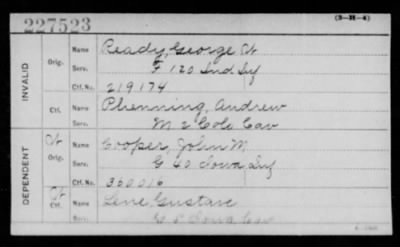 227523
(3-H-4)
INVALID
Orig.
Name Ready, George W
Serv. F 120 Ind Inf
Ctf. No. 219174
Ctf.
Name Phenning, Andrew
Serv. M 2 Colo Cav
DEPENDENT
Wt
Orig.
Name Cooper, John M
Serv. G 40 Iowa Inf
Ctf. No. 360016
Wt
Ctf.
Name Lene, Gustave
Serv. Iowa Cav